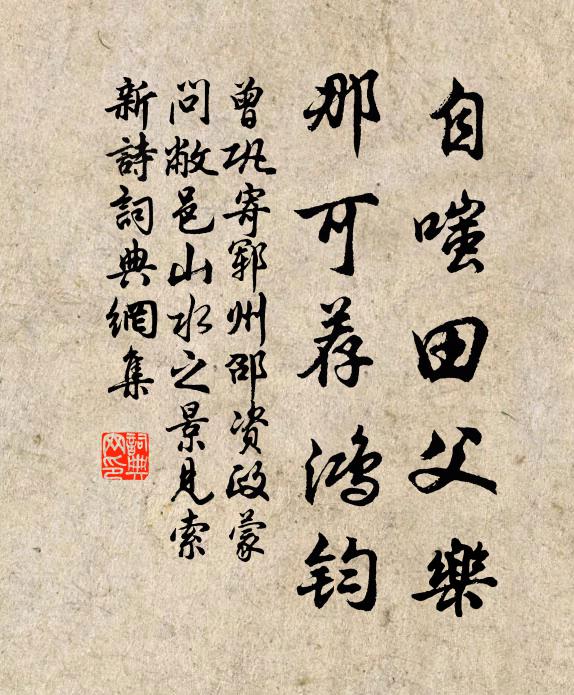 自嗤田父樂
那可荐鸿钧
曾巩寄郓州邵资政蒙
問敝邑山水之景見索
新詩詞典網集
詞典
网印